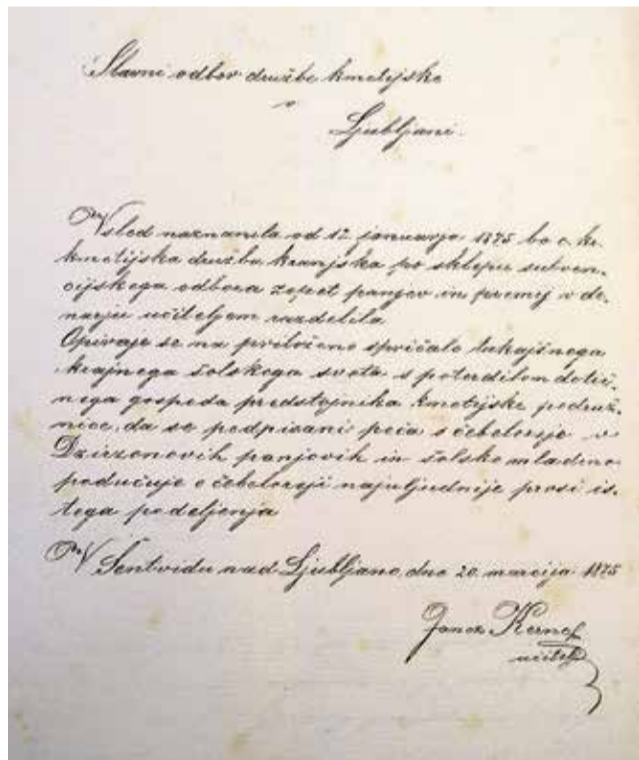 Slavni odbor družbe kmetijske
v
Ljubljani.
Vsled naznanila od 12. januarja 1875 bo c. kr.
kmetijska družba kranjska po sklepu subven-
cijskega odbora zopet panjev in premij v de-
narju učiteljem razdelila.
Opiraje se na priloženo spričalo tukajšnega
krajnega šolskega sveta s poterdilom dotič-
nega gospoda predstojnika kmetijske podruž-
nice, da se podpisani peča s čebelorejo v
Dzirzonovih panjovih in šolsko mladino
podučuje o čebeloreji najuljudnije prosi is-
tega podeljenja
V Šentvidu nad Ljubljano, dne 20. marcija 1875
Janez
učitelj